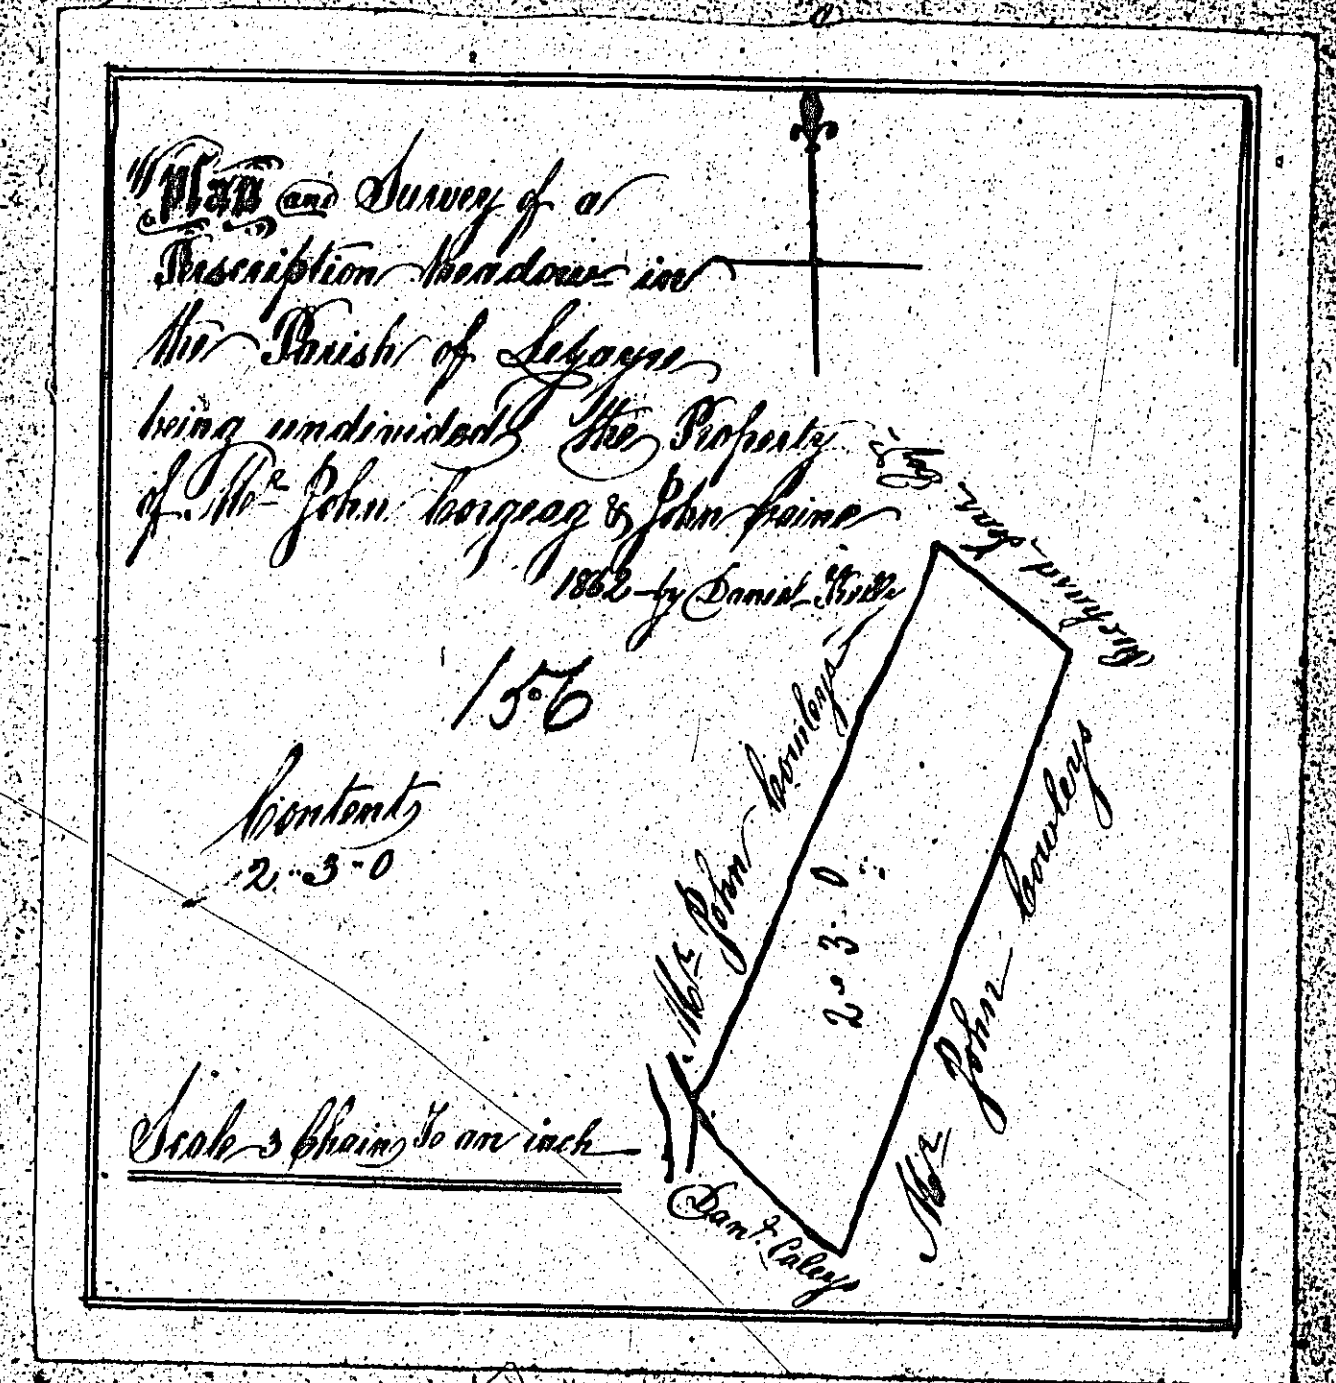 Plan and Survey of a
Prescription meadow in
the Parish of Lezayre
being undivided the Property
of Mr John Corgeag & John Caine
1862 by Daniel Kelly
Content
2 .. 3 - 0
Scale 3 Chains To an inch
Mr John Cowleys
2 .. 3 . 0
Mr John Cowleys
Danl. Caleys